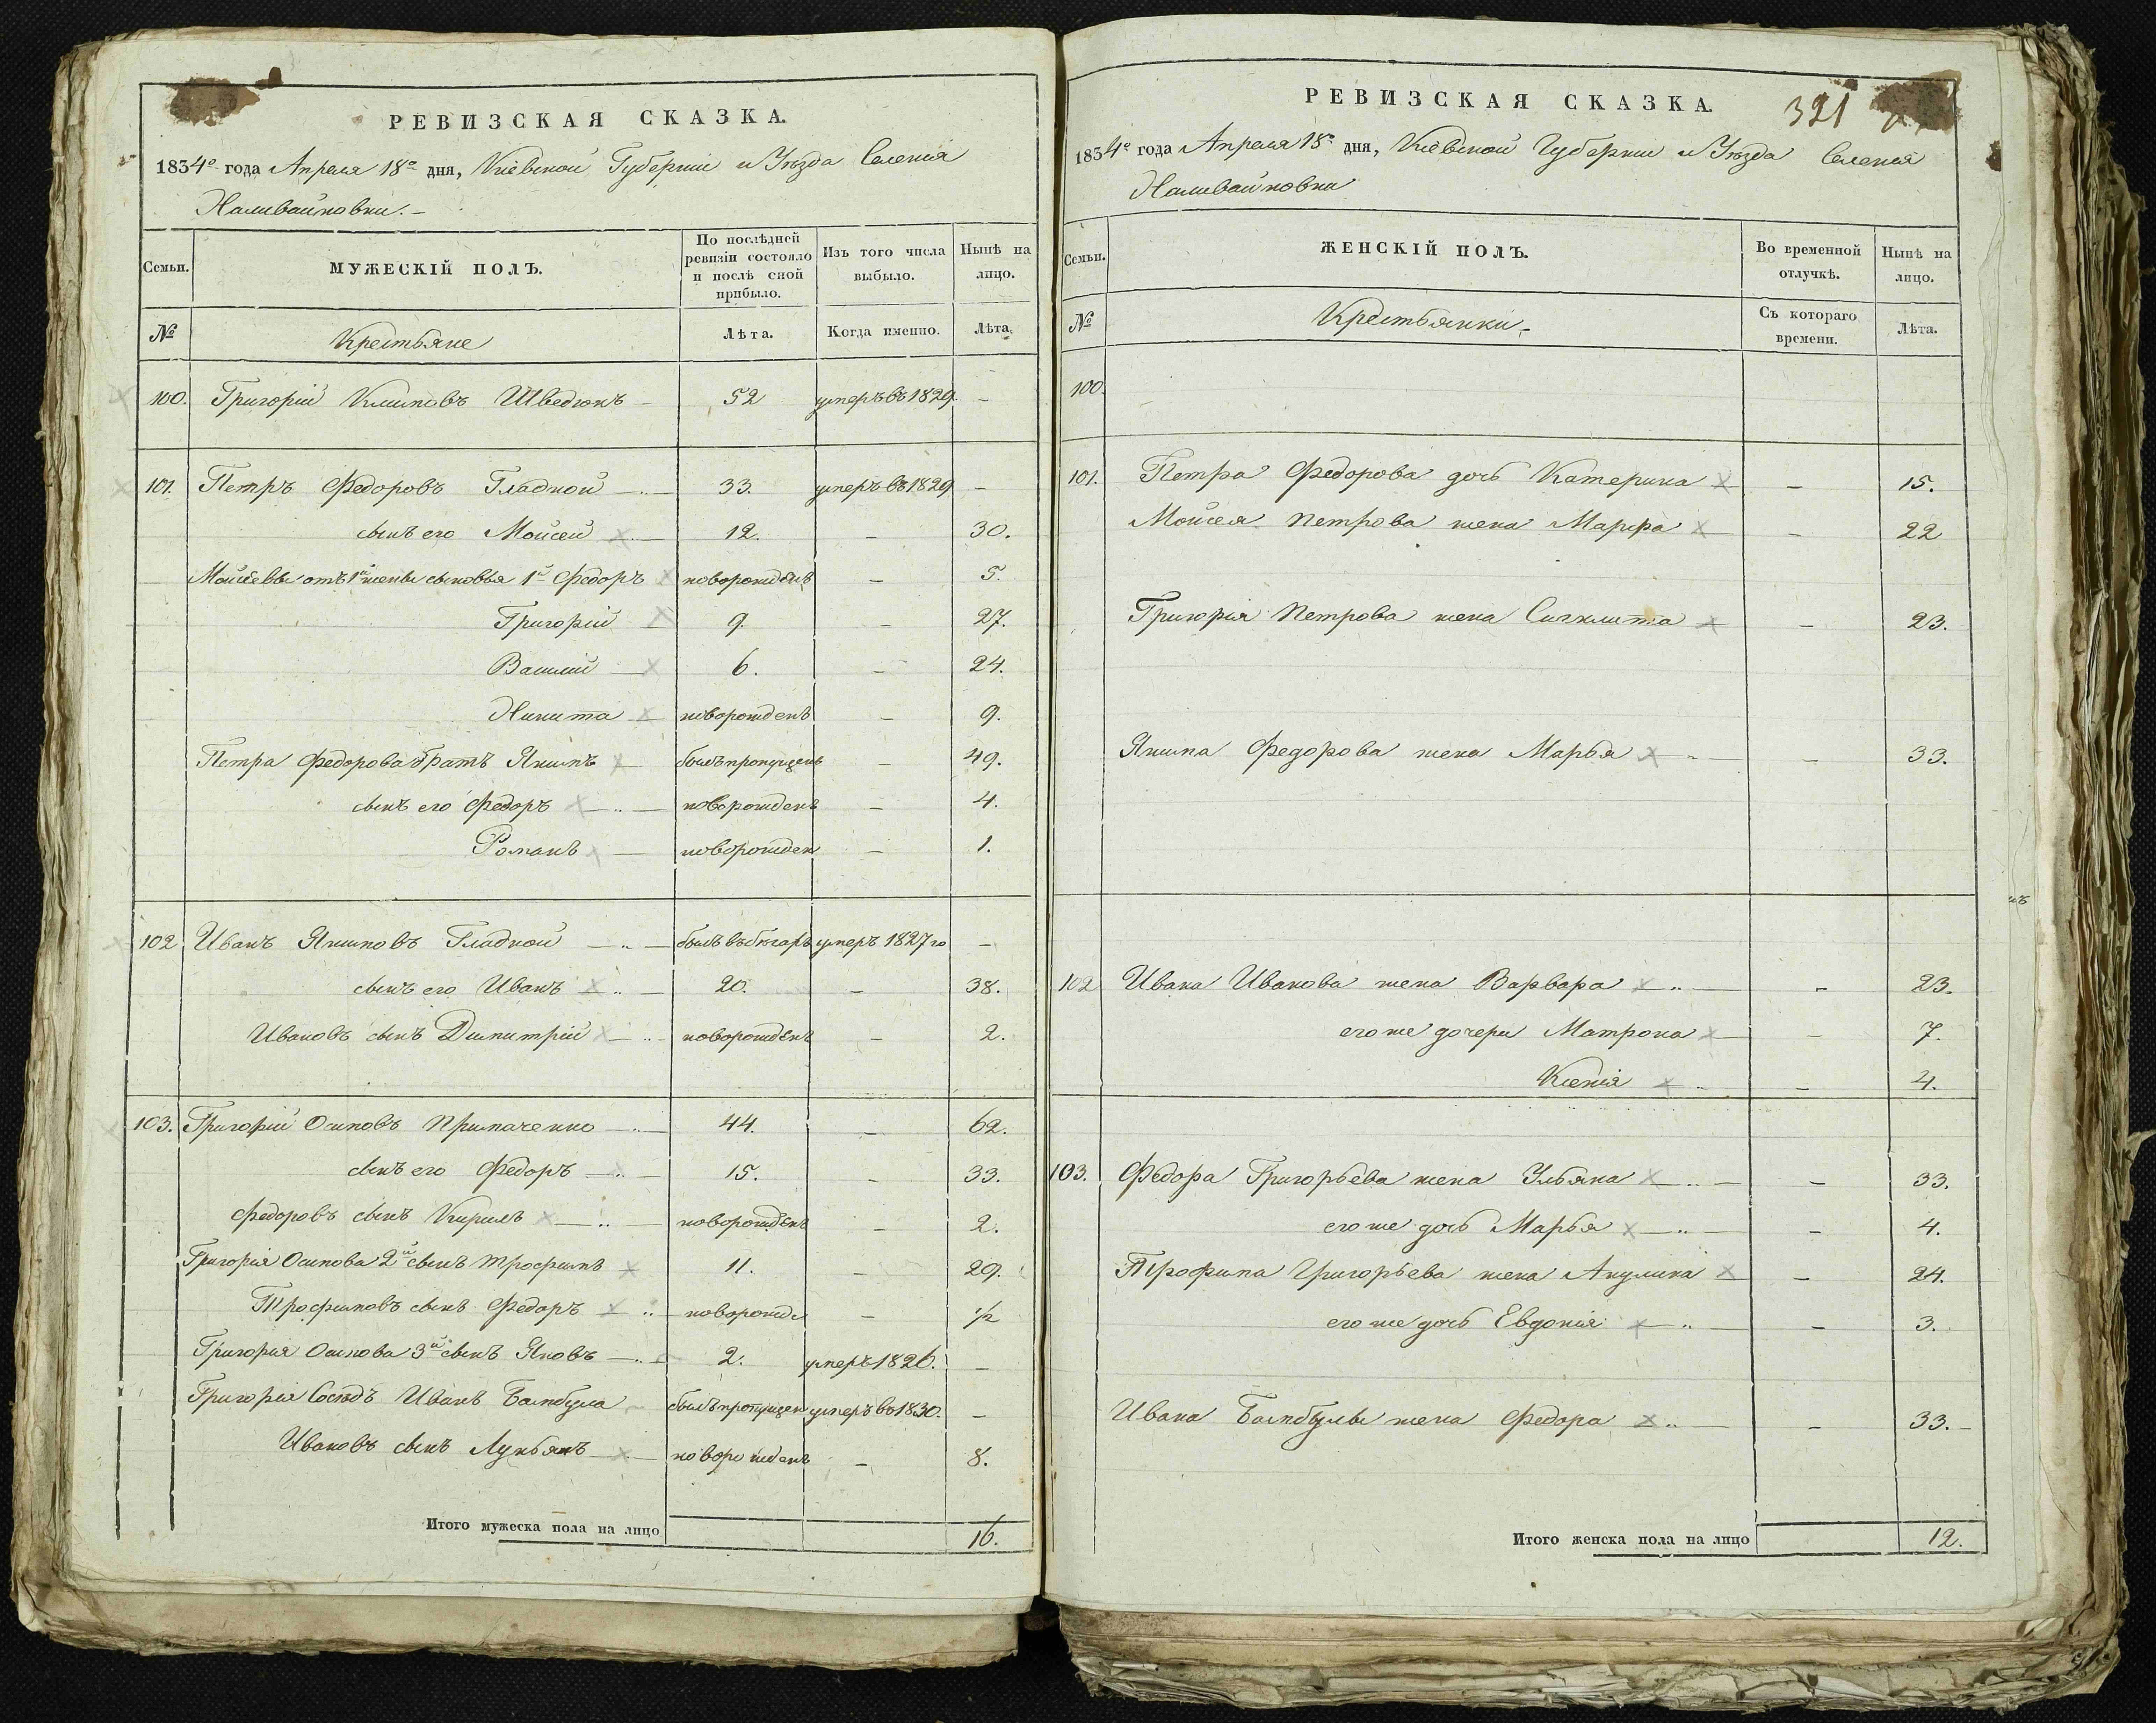 РЕВИЗСКАЯ СКАЗКА.
1834го года Апреля 18го дня, Кіевской Губерніи и Уѣзда Селенія
Наливайковки.
Семьи. МУЖЕСКІЙ ПОЛЪ. По послѣдней ревизіи состояло и послѣ оной прибыло. Изъ того числа выбыло. Нынѣ на лицо.
№ Крестьяне Лѣта. Когда именно. Лѣта.
100. Григорій Климовъ Шведюкъ 52 умеръ въ 1829. –
101. Петръ Федоровъ Гладкой 33. умеръ въ 1829 –
сынъ его Мойсей 12. – 30.
Мойсѣевы отъ 1й жены сыновья 1й Федоръ новорожденъ – 5.
Григорій 9. – 27.
Василій 6. – 24.
Никита новорожденъ – 9.
Петра Федорова братъ Якимъ былъ пропущенъ – 49.
сынъ его Федоръ новорожденъ – 4.
Романъ новорожден – 1.
102 Иванъ Якимовъ Гладкой былъ въ бѣгахъ умеръ 1827го –
сынъ его Иванъ 20. – 38.
Ивановъ сынъ Димитрій новорожденъ – 2.
103. Григорій Осиповъ Примаченко 44. – 62.
сынъ его Федоръ 15. – 33.
Федоровъ сынъ Кирилъ новорожденъ – 2.
Григорія Осипова 2й сынъ Трофимъ 11. – 29.
Трофимовъ сынъ Федоръ новорожде – 1/2
Григорія Осипова 3й сынъ Яковъ 2. умеръ 1826. –
Григорія Сосѣдъ Иванъ Бамбула былъ пропущен умеръ въ 1830. –
Ивановъ сынъ Лукьянъ новорожденъ – 8.
Итого мужеска пола на лицо 16.
РЕВИЗСКАЯ СКАЗКА. 321
1834го года Апреля 18го дня, Кіевской Губерніи и Уѣзда Селенія
Наливайковки
Семьи. ЖЕНСКІЙ ПОЛЪ. Во временной отлучкѣ. Нынѣ на лицо.
№ Крестьянки Съ котораго времени. Лѣта.
100.
101. Петра Федорова дочь Катерина – 15.
Мойсея Петрова жена Марфа – 22
Григорія Петрова жена – 23.
Якима Федорова жена Марья – 33.
102 Ивана Иванова жена Варвара – 23.
его же дочери Матрона – 7.
Ксенія – 4.
103. Федора Григорьева жена Ульяна – 33.
его же дочь Марья – 4.
Трофима Григорьева жена Акулина – 24.
его же дочь Евдокія – 3.
Ивана Бамбулы жена Федора – 33.
Итого женска пола на лицо 12.